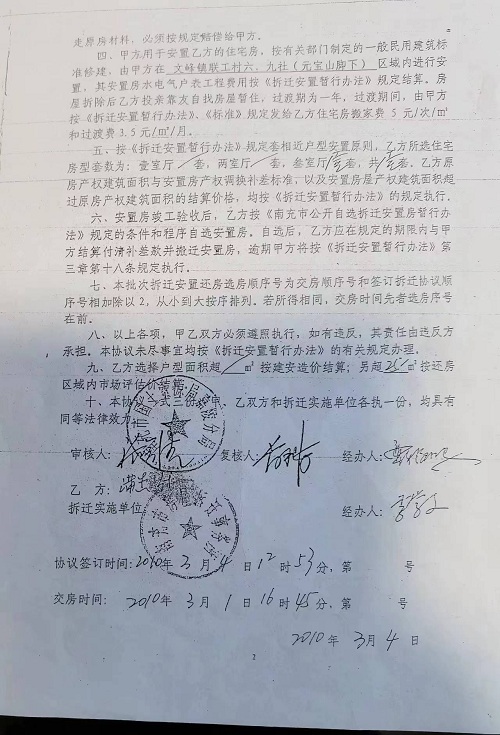 走原房材料，必须按规定赔偿给甲方。
四、甲方用于安置乙方的住宅房，按有关部门制定的一般民用建筑标
准修建，由甲方在 文峰镇联工村六、九社（元宝山脚下） 区域内进行安
置，其安置房水电气户表工程费用按《拆迁安置暂行办法》规定结算。房
屋拆除后乙方投亲靠友自找房屋暂住，过渡期为一年，过渡期间，由甲方
按《拆迁安置暂行办法》、《标准》规定发给乙方住宅房搬家费 5 元/次/㎡
和过渡费 3.5 元/㎡/月。
五、按《拆迁安置暂行办法》规定套相近户型安置原则，乙方所选住宅
房型套数为：壹室厅/套，两室厅/套，叁室厅壹套，共壹套。乙方原
房产权建筑面积与安置房产权调换补差标准，以及安置房是产权建筑面积超
过原房产权建筑面积的结算价格，均按《拆迁安置暂行办法》的规定执行。
六、安置房竣工验收后，乙方按《南充市公开自选拆迁安置房暂行办
法》规定的条件和程序自选安置房。自选后，乙方应在规定的期限内与甲
方结算付清补差款并搬迁安置房，逾期甲方将按《拆迁安置暂行办法》第
三章第十八条规定执行。
七、本批次拆迁安置还房选房顺序号为交房顺序号和签订拆迁协议顺
序号相加除以 2，从小到大按序排列。若所得相同，交房时间先者选房序号
在前。
八、以上各项，甲乙双方必须遵照执行，如有违反，其责任由违反方
承担。本协议未尽事宜均按《拆迁安置暂行办法》的有关规定办理。
九、乙方选择户型面积超 / ㎡按建安造价结算；另超 25 ㎡按还房
区域内市场评估价结算。
十、本协议一式三份，甲、乙双方和拆迁实施单位各执一份，均具有
同等法律效力。
审核人： 复核人： 经办人：
乙 方：
拆迁实施单位： 经办人：
协议签订时间：2010 年 3 月 4 日 12 时 53 分，第 号
交房时间： 2010 年 3 月 1 日 16 时 45 分，第 号
2010 年 3 月 4 日
2